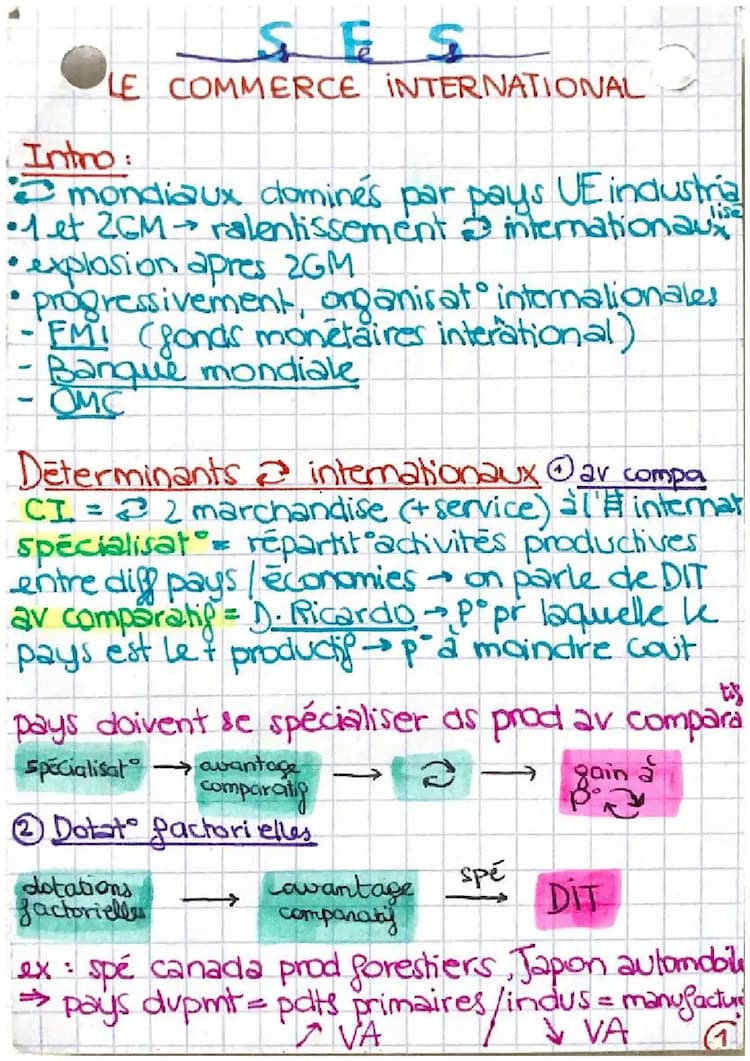 SES
LE COMMERCE INTERNATIONAL
Intro :
• ⇄ mondiaux dominés par pays UE industrialisé
• 1 et 2GM → ralentissement ⇄ internationaux
• explosion apres 2GM
• progressivement, organisat° internationales
- FMI (fonds monétaires interational)
- Banque mondiale
- OMC
Déterminants ⇄ internationaux ① av compa
CI = ⇄ 2 marchandise (+ service) à l'# internat
spécialisat° = répartit° activités productives
entre diff pays / économies → on parle de DIT
av comparatif = D. Ricardo → p° pr laquelle le
pays est le + productif → p° à moindre cout
pays doivent se spécialiser ds prod av comparatifs
spécialisat° → avantage comparatif → ⇄ → gain à p° ⇄
② Dotat° factorielles
dotations factorielles → avantage comparatif spé → DIT
ex : spé canada prod forestiers, Japon automobile
⇒ pays dvpmt = pdts primaires / indus = manufactu
↗ VA / ↘ VA
①